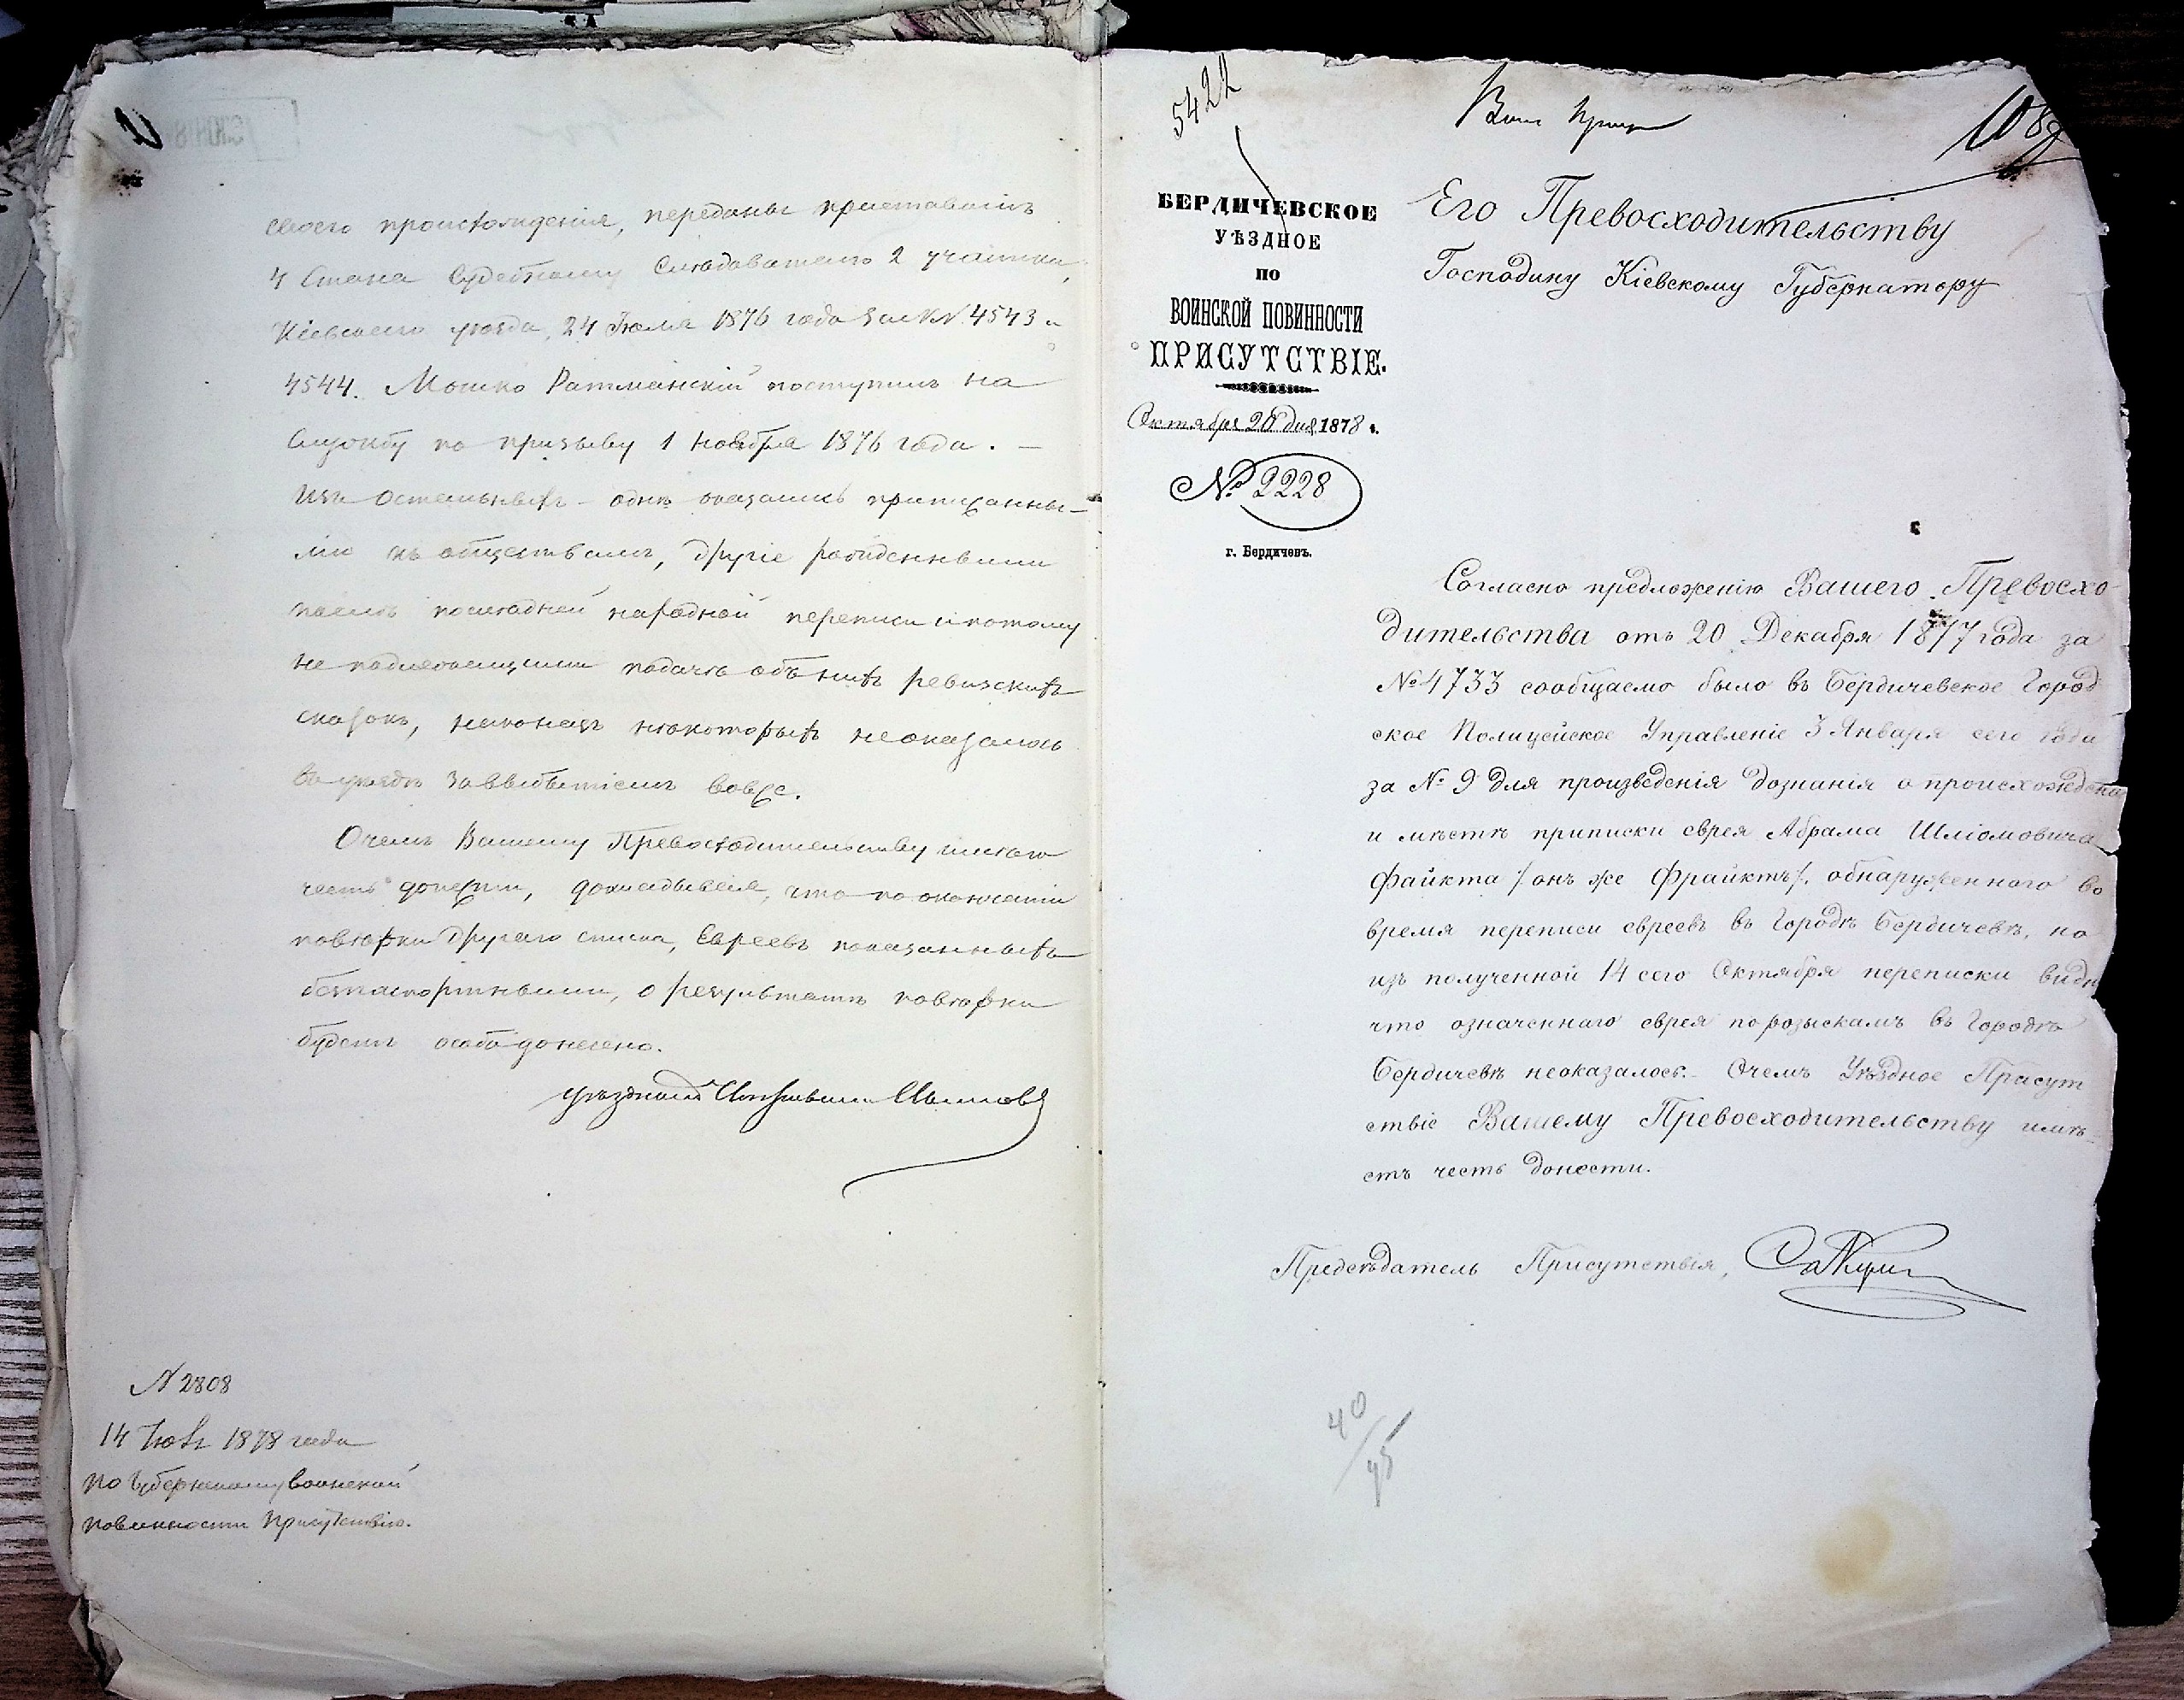 своего происхожденія, переданы приставомъ
4 Стана Судебному Слѣдователю 2 участка,
Кіевскаго уѣзда, 24 Іюля 1876 года за №№ 4543 и
4544. Мошко Ратманскій поступилъ на
службу по призыву 1 Ноября 1876 года. —
Изъ остальныхъ – однѣ оказались приписанны-
ми къ обществамъ, другіе рожденными
послѣ послѣдней народной переписи и потому
не подлежащими подачѣ объ нихъ ревизскихъ
сказокъ, наконецъ нѣкоторыхъ неоказалось
въ уѣздѣ за выбытіемъ вовсе.
Очемъ Вашему Превосходительству имѣю
честь донести, докладывая, что по окончаніи
повѣрки другаго списка, Евреевъ показанныхъ
безпаспортными, о результатѣ повѣрки
будетъ особо донесено.
Уѣздный Исправникъ
N 2808
14 1878 года
По Губернскому воинской
повинности Присутствію.
5422
108
БЕРДИЧЕВСКОЕ
УѢЗДНОЕ
ПО
ВОИНСКОЙ ПОВИННОСТИ
ПРИСУТСТВІЕ.
Октября 20 дня 1878 г.
№ 2228
г. Бердичевъ.
Его Превосходительству
Господину Кіевскому Губернатору
Согласно предложенію Вашего Превосхо-
дительства отъ 20 Декабря 1877 года за
№ 4733 сообщаемо было въ Бердичевское Город
ское Полицейское Управленіе 3 Января сего года
за № 9 для произведенія дознанія о происхожденіи
и мѣстѣ приписки еврея Абрама Шліомовича
Файкта /онъ же Фрайктъ/. обнаруженнаго во
время переписи евреевъ въ Городѣ Бердичевѣ, но
изъ полученной 14 сего Октября переписки видно
что означеннаго еврея по розыскамъ въ Городѣ
Бердичевѣ неоказалось. Очемъ Уѣздное Присут
ствіе Вашему Превосходительству имѣ-
етъ честь донести.
Предсѣдатель Присутствія,
40/45